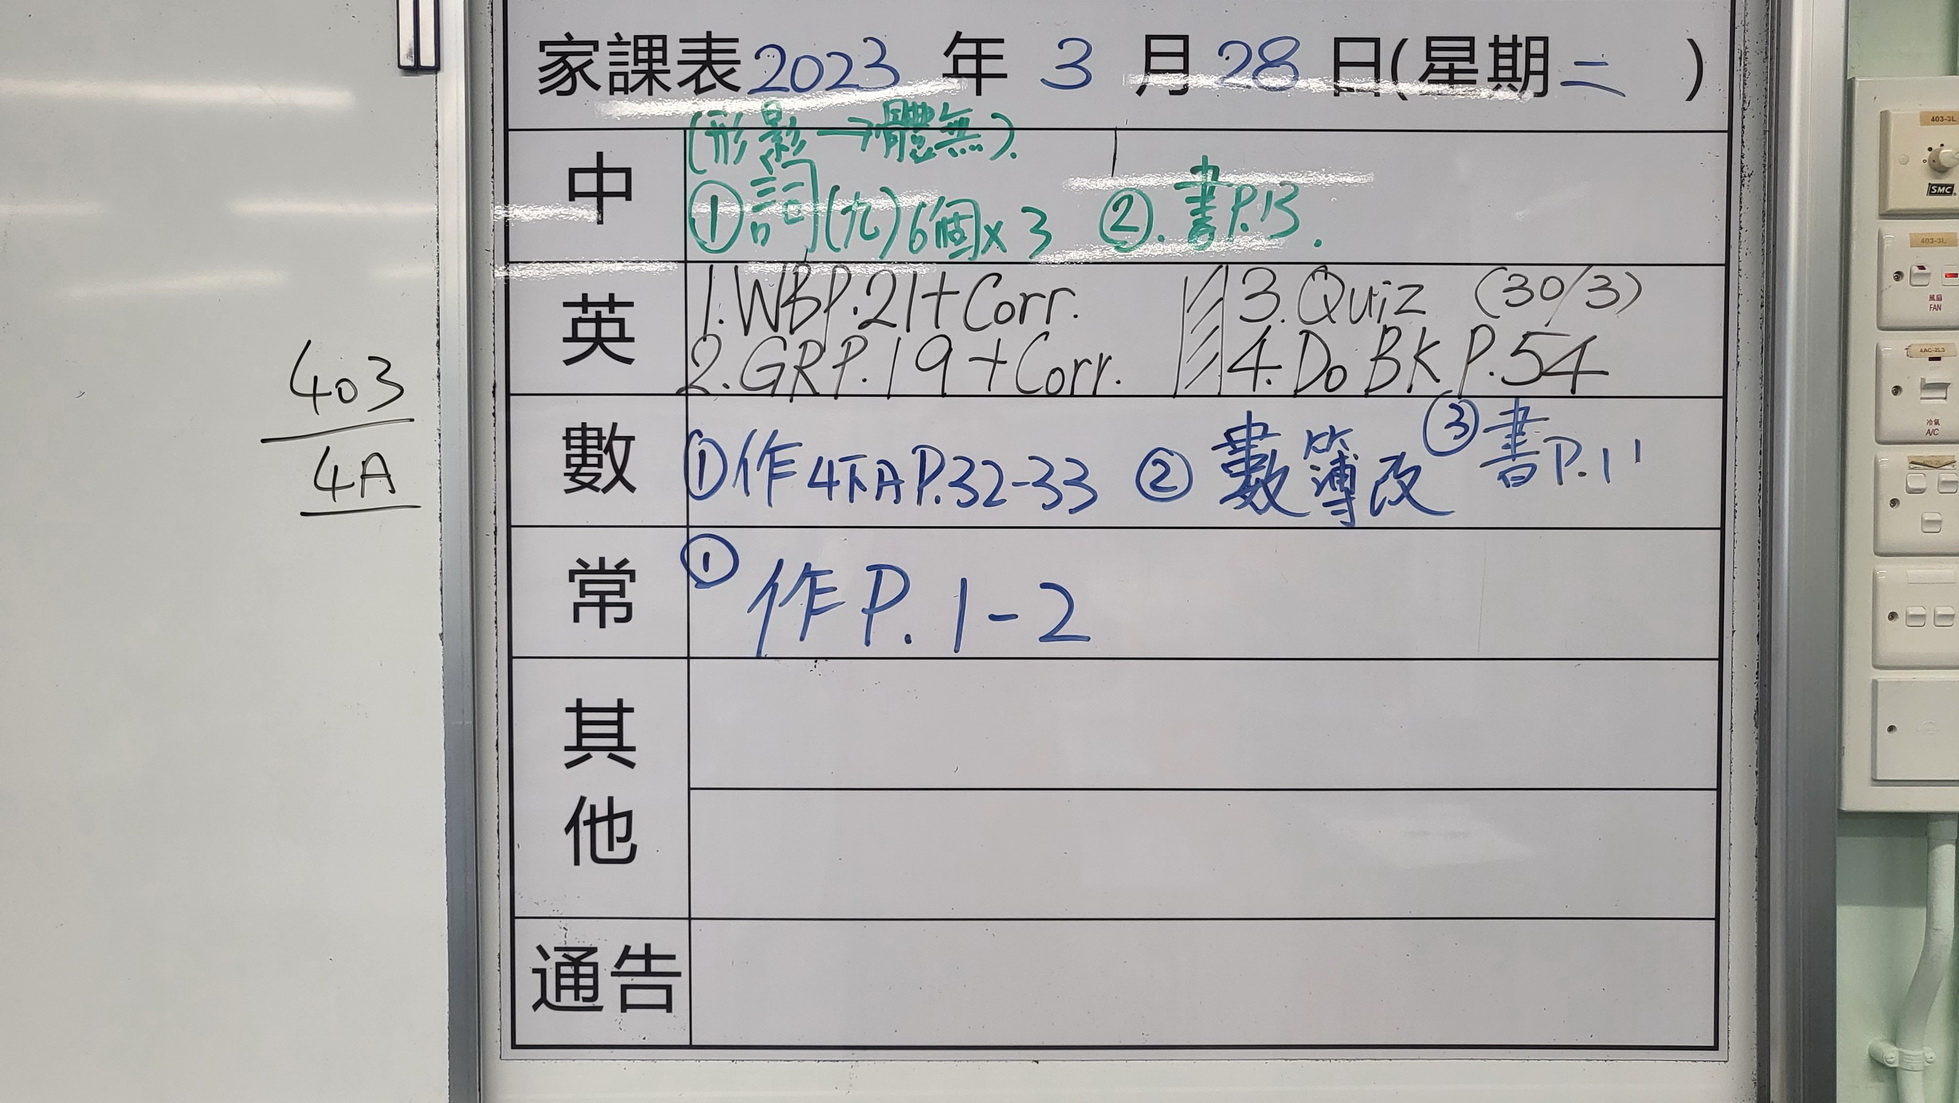 家課表2023年3月28日(星期二)
中
(形影→體無).
①詞(九)6個x3 ②.書P.13.
英
1.WBP.21+Corr. 3.Quiz (30/3)
2.GRP.19+Corr. 4.Do BK P.54
數
①作4下A P.32-33 ②數簿改 ③書P.11
常
①作P.1-2
其他
通告
403
4A
403-3L
SMC
403-3L
風扇
FAN
冷氣
A/C